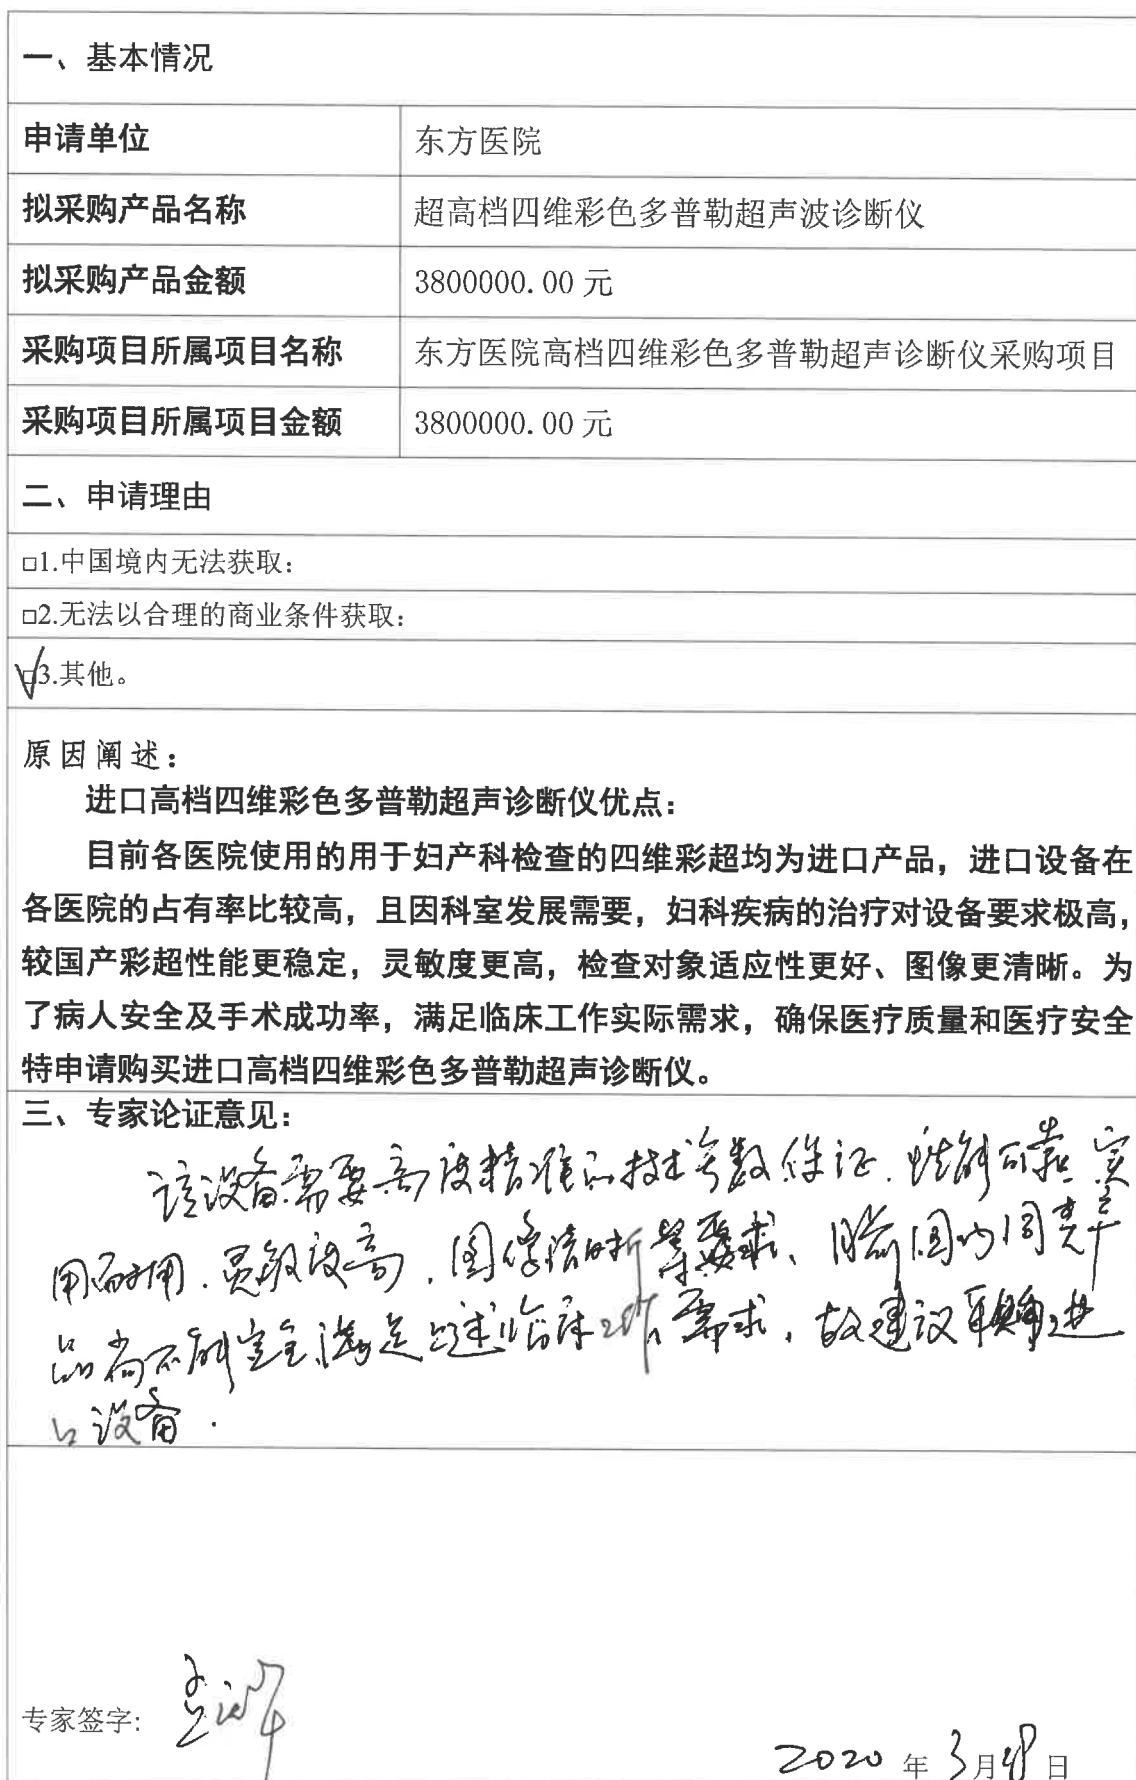 一、基本情况
申请单位 东方医院
拟采购产品名称 超高档四维彩色多普勒超声波诊断仪
拟采购产品金额 3800000.00 元
采购项目所属项目名称 东方医院高档四维彩色多普勒超声诊断仪采购项目
采购项目所属项目金额 3800000.00 元
二、申请理由
□1.中国境内无法获取：
□2.无法以合理的商业条件获取：
☑3.其他。
原因阐述：
进口高档四维彩色多普勒超声诊断仪优点：
目前各医院使用的用于妇产科检查的四维彩超均为进口产品，进口设备在
各医院的占有率比较高，且因科室发展需要，妇科疾病的治疗对设备要求极高，
较国产彩超性能更稳定，灵敏度更高，检查对象适应性更好、图像更清晰。为
了病人安全及手术成功率，满足临床工作实际需求，确保医疗质量和医疗安全
特申请购买进口高档四维彩色多普勒超声诊断仪。
三、专家论证意见：
该设备需要高度精准的技术参数保证．性能可靠．实
用耐用．灵敏度高．图像清晰等要求、目前国内同类产
品尚不能完全满足上述临床 需求，故建议采购进
口设备．
专家签字:
2020 年 3 月 日